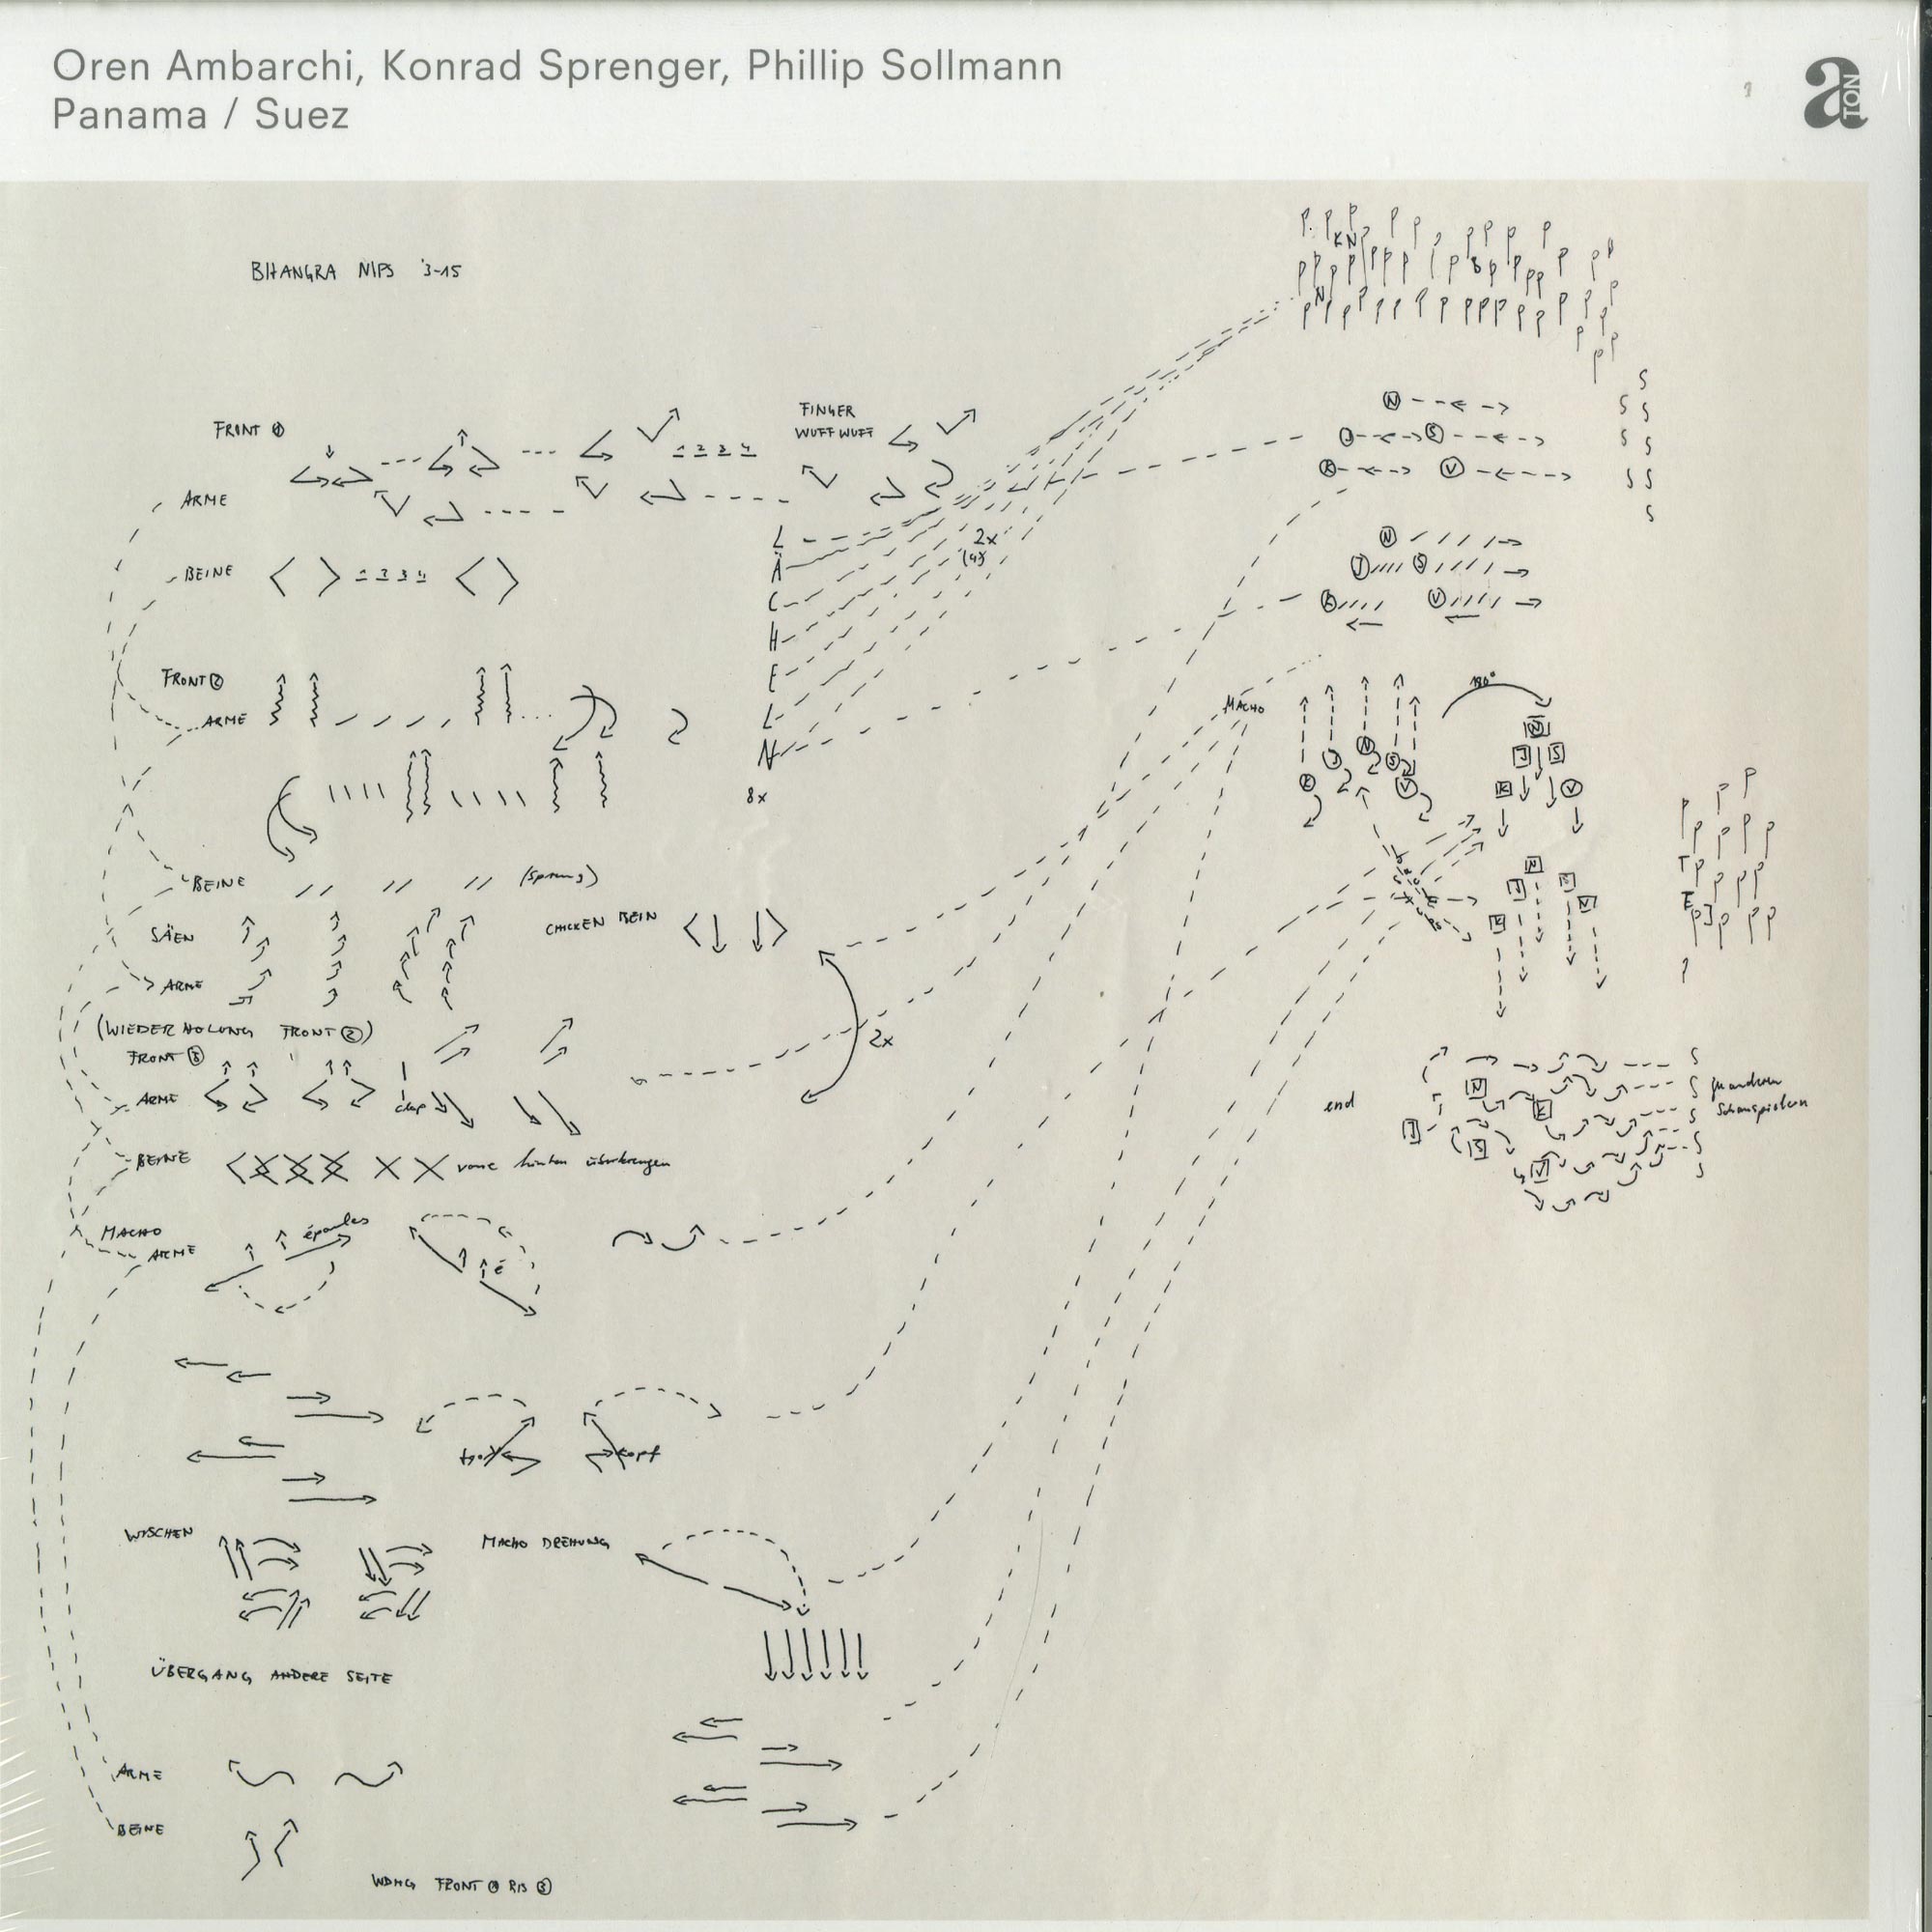 Oren Ambarchi, Konrad Sprenger, Phillip Sollmann
Panama / Suez
a
TON
BHANGRA NIPS '3-15
FRONT ①
FINGER
WUFF WUFF
1 2 3 4
ARME
BEINE
1 2 3 4
L
Ä
C
H
E
L
N
2x
(4x)
8x
FRONT ②
ARME
BEINE
(Sprung)
SÄEN
CHICKEN BEIN
ARME
(WIEDERHOLUNG FRONT ②)
2x
FRONT ③
ARME
clap
BEINE
vorne hinten
MACHO
ARME
épaules
é
kopf
kopf
WISCHEN
MACHO DREHUNG
ÜBERGANG ANDERE SEITE
ARME
BEINE
WDHG FRONT ① BIS ③
P P P P P P P P P P
KN
N
N
J S
K V
N
J S
K V
S
S S
S S
S S
S
MACHO
180°
K J N S V
N
J S
K V
N
J
K V
P P
P P P P
T P P P P
E P P P P
end
N
K
J
S
V
S
S
S
S
S
zu anderen
Schauspielern